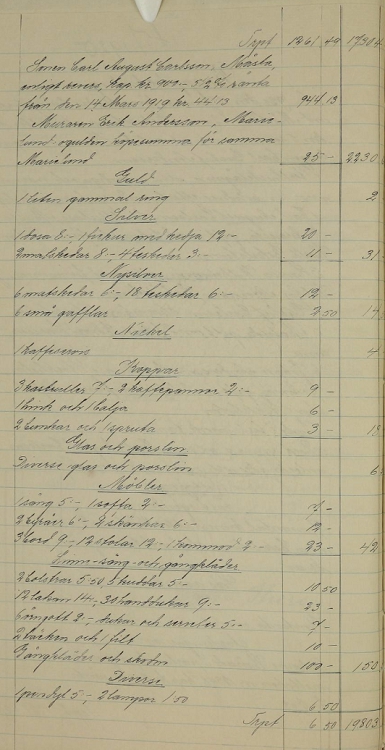 Trpt 1261 49 17304
Sonen Carl August Carlsson, Måsta,
enligt revers, Kap. kr. 900 - 5 2/3 % ränta
från den 14 Mars 1919 kr. 44 13 944 13
Muraren Erik Andersson, Marie-
lund ogulden köpesumma för samma
Marielund 25 - 2230
Guld
1 liten gammal ring 2
Silver
1 dosa 8:-, 1 fickur med kedja 12:- 20 -
2 matskedar 8:-, 4 teskedar 3:- 11 - 31
Nysilver
6 matskedar 6:-, 18 teskedar 6:- 12 -
6 små gafflar 2 50 14
Nickel
1 kaffeservis 4
Koppar
3 kastruller 7:- 2 kaffepannor 2:- 9 -
1 och 1 balja 6 -
2 bunkar och 1 spruta 3 - 18
Glas och porslin
Diverse glas och porslin 6
Möbler
1 säng 5:-, 1 soffa 2:- 7 -
2 byråer 6:-, 2 skänkar 6:- 12 -
3 bord 9:-, 12 stolar 12:-, 1 kommod 2:- 23 - 42
Linne-säng-och gångkläder
2 bolstrar 5 50 5 kuddar 5:- 10 50
12 lakan 14:-, 30 handdukar 9:- 23 -
6 örngott 2:-, dukar och servetter 5:- 7 -
2 täcken och 1 filt 10 -
Gångkläder och skodon 100 - 150
Diverse
5:-, 2 lampor 1 50 6 50
Trpt 6 50 19803